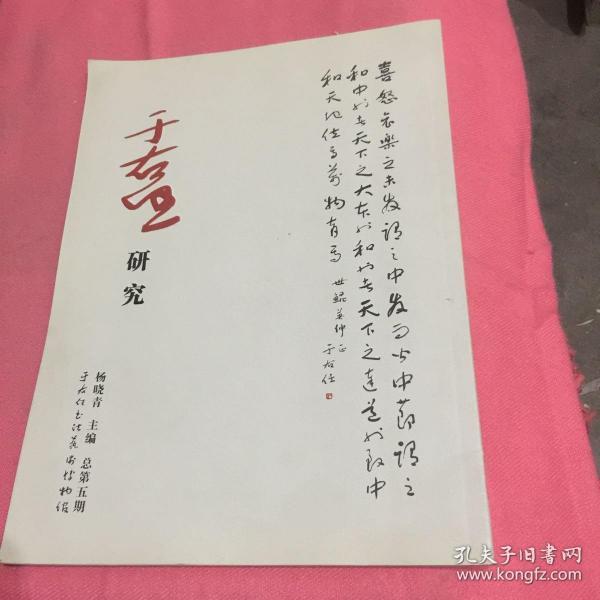 喜怒哀樂之未發謂之中發而皆中節謂之
和中也者天下之大本也和也者天下之達道也致中
和天地位焉萬物育焉
世鯤 仲 正
于右任
于右任
研究
杨晓青 主编 总第五期
于右任书法艺术博物馆
孔夫子旧书网
www.kongfz.com